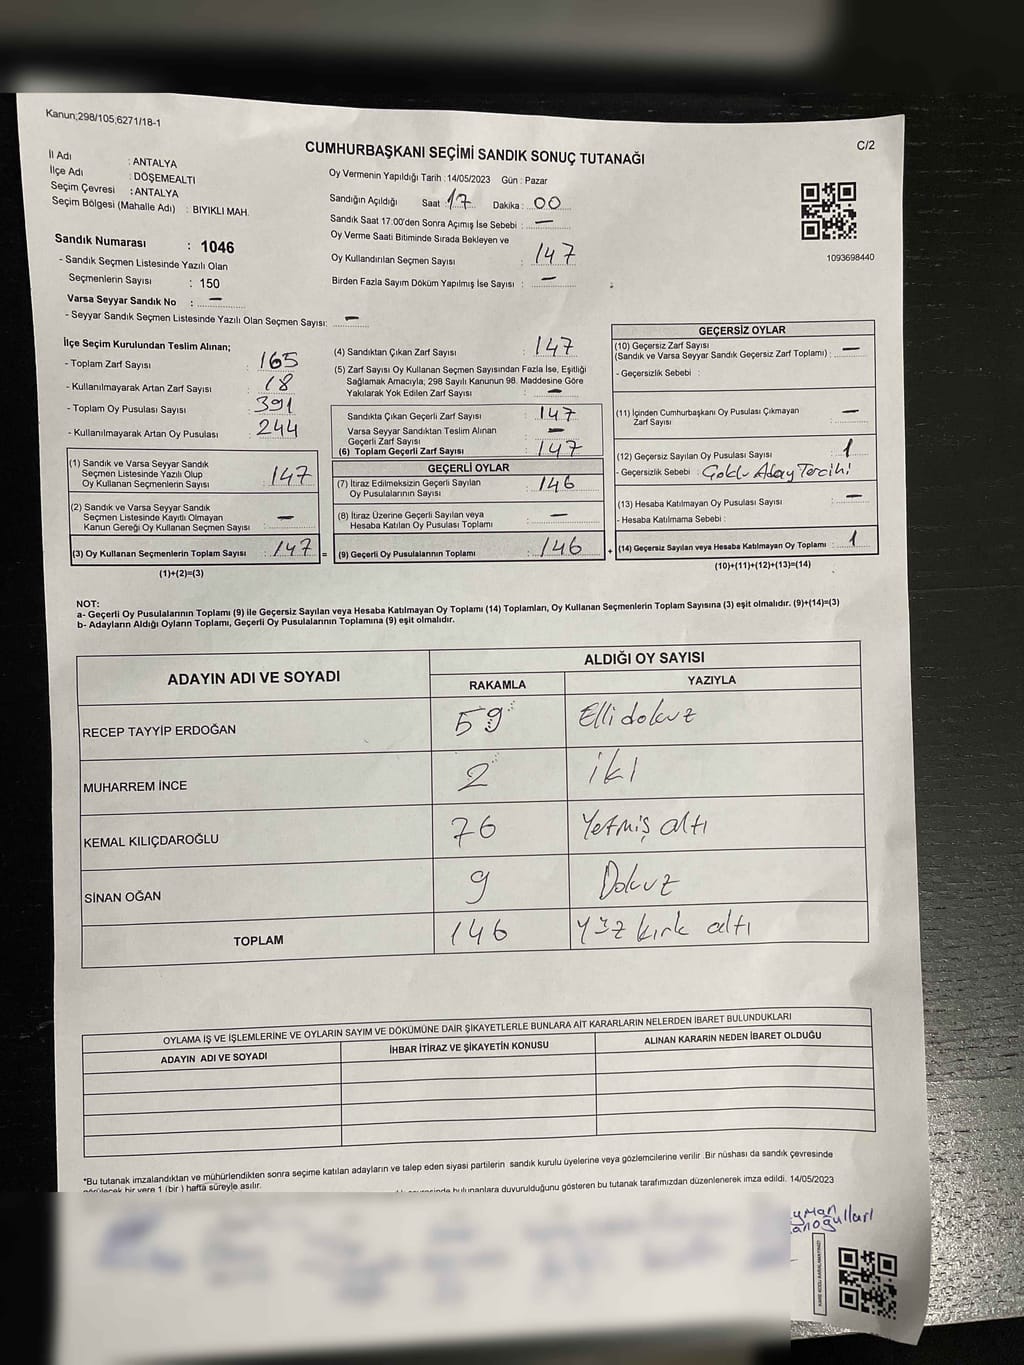 Kanun;298/105,6271/18-1
C/2
CUMHURBAŞKANI SEÇİMİ SANDIK SONUÇ TUTANAĞI
İl Adı : ANTALYA
İlçe Adı : DÖŞEMEALTI
Seçim Çevresi : ANTALYA
Seçim Bölgesi (Mahalle Adı) : BIYIKLI MAH.
Sandık Numarası : 1046
- Sandık Seçmen Listesinde Yazılı Olan
Seçmenlerin Sayısı : 150
Varsa Seyyar Sandık No : —
- Seyyar Sandık Seçmen Listesinde Yazılı Olan Seçmen Sayısı: —
Oy Vermenin Yapıldığı Tarih : 14/05/2023 Gün : Pazar
Sandığın Açıldığı Saat : 17 Dakika : 00
Sandık Saat 17:00'den Sonra Açımış İse Sebebi : —
Oy Verme Saati Bitiminde Sırada Bekleyen ve
Oy Kullandırılan Seçmen Sayısı : 147
Birden Fazla Sayım Döküm Yapılmış İse Sayısı : —
1093698440
İlçe Seçim Kurulundan Teslim Alınan;
- Toplam Zarf Sayısı : 165
- Kullanılmayarak Artan Zarf Sayısı : 18
- Toplam Oy Pusulası Sayısı : 391
- Kullanılmayarak Artan Oy Pusulası : 244
(1) Sandık ve Varsa Seyyar Sandık
Seçmen Listesinde Yazılı Olup
Oy Kullanan Seçmenlerin Sayısı : 147
(2) Sandık ve Varsa Seyyar Sandık
Seçmen Listesinde Kayıtlı Olmayan
Kanun Gereği Oy Kullanan Seçmen Sayısı : —
(3) Oy Kullanan Seçmenlerin Toplam Sayısı : 147 =
(1)+(2)=(3)
(4) Sandıktan Çıkan Zarf Sayısı : 147
(5) Zarf Sayısı Oy Kullanan Seçmen Sayısından Fazla İse, Eşitliği
Sağlamak Amacıyla, 298 Sayılı Kanunun 98. Maddesine Göre
Yakılarak Yok Edilen Zarf Sayısı : —
Sandıkta Çıkan Geçerli Zarf Sayısı : 147
Varsa Seyyar Sandıktan Teslim Alınan
Geçerli Zarf Sayısı : —
(6) Toplam Geçerli Zarf Sayısı : 147
GEÇERLİ OYLAR
(7) İtiraz Edilmeksizin Geçerli Sayılan
Oy Pusulalarının Sayısı : 146
(8) İtiraz Üzerine Geçerli Sayılan veya
Hesaba Katılan Oy Pusulası Toplamı : —
(9) Geçerli Oy Pusulalarının Toplamı : 146 +
GEÇERSİZ OYLAR
(10) Geçersiz Zarf Sayısı
(Sandık ve Varsa Seyyar Sandık Geçersiz Zarf Toplamı) : —
- Geçersizlik Sebebi :
(11) İçinden Cumhurbaşkanı Oy Pusulası Çıkmayan
Zarf Sayısı : —
(12) Geçersiz Sayılan Oy Pusulası Sayısı : 1
- Geçersizlik Sebebi : Çoklu Aday Tercihi
(13) Hesaba Katılmayan Oy Pusulası Sayısı : —
- Hesaba Katılmama Sebebi :
(14) Geçersiz Sayılan veya Hesaba Katılmayan Oy Toplamı : 1
(10)+(11)+(12)+(13)=(14)
NOT:
a- Geçerli Oy Pusulalarının Toplamı (9) ile Geçersiz Sayılan veya Hesaba Katılmayan Oy Toplamı (14) Toplamları, Oy Kullanan Seçmenlerin Toplam Sayısına (3) eşit olmalıdır. (9)+(14)=(3)
b- Adayların Aldığı Oyların Toplamı, Geçerli Oy Pusulalarının Toplamına (9) eşit olmalıdır.
ADAYIN ADI VE SOYADI ALDIĞI OY SAYISI
RAKAMLA YAZIYLA
RECEP TAYYİP ERDOĞAN 59 Elli dokuz
MUHARREM İNCE 2 iki
KEMAL KILIÇDAROĞLU 76 Yetmiş altı
SİNAN OĞAN 9 Dokuz
TOPLAM 146 Yüz kırk altı
OYLAMA İŞ VE İŞLEMLERİNE VE OYLARIN SAYIM VE DÖKÜMÜNE DAİR ŞİKAYETLERLE BUNLARA AİT KARARLARIN NELERDEN İBARET BULUNDUKLARI
ADAYIN ADI VE SOYADI İHBAR İTİRAZ VE ŞİKAYETİN KONUSU ALINAN KARARIN NEDEN İBARET OLDUĞU
*Bu tutanak imzalandıktan ve mühürlendikten sonra seçime katılan adayların ve talep eden siyasi partilerin sandık kurulu üyelerine veya gözlemcilerine verilir .Bir nüshası da sandık çevresinde
görülecek bir yere 1 (bir ) hafta süreyle asılır.
bulunanlara duyurulduğunu gösteren bu tutanak tarafımızdan düzenlenerek imza edildi. 14/05/2023